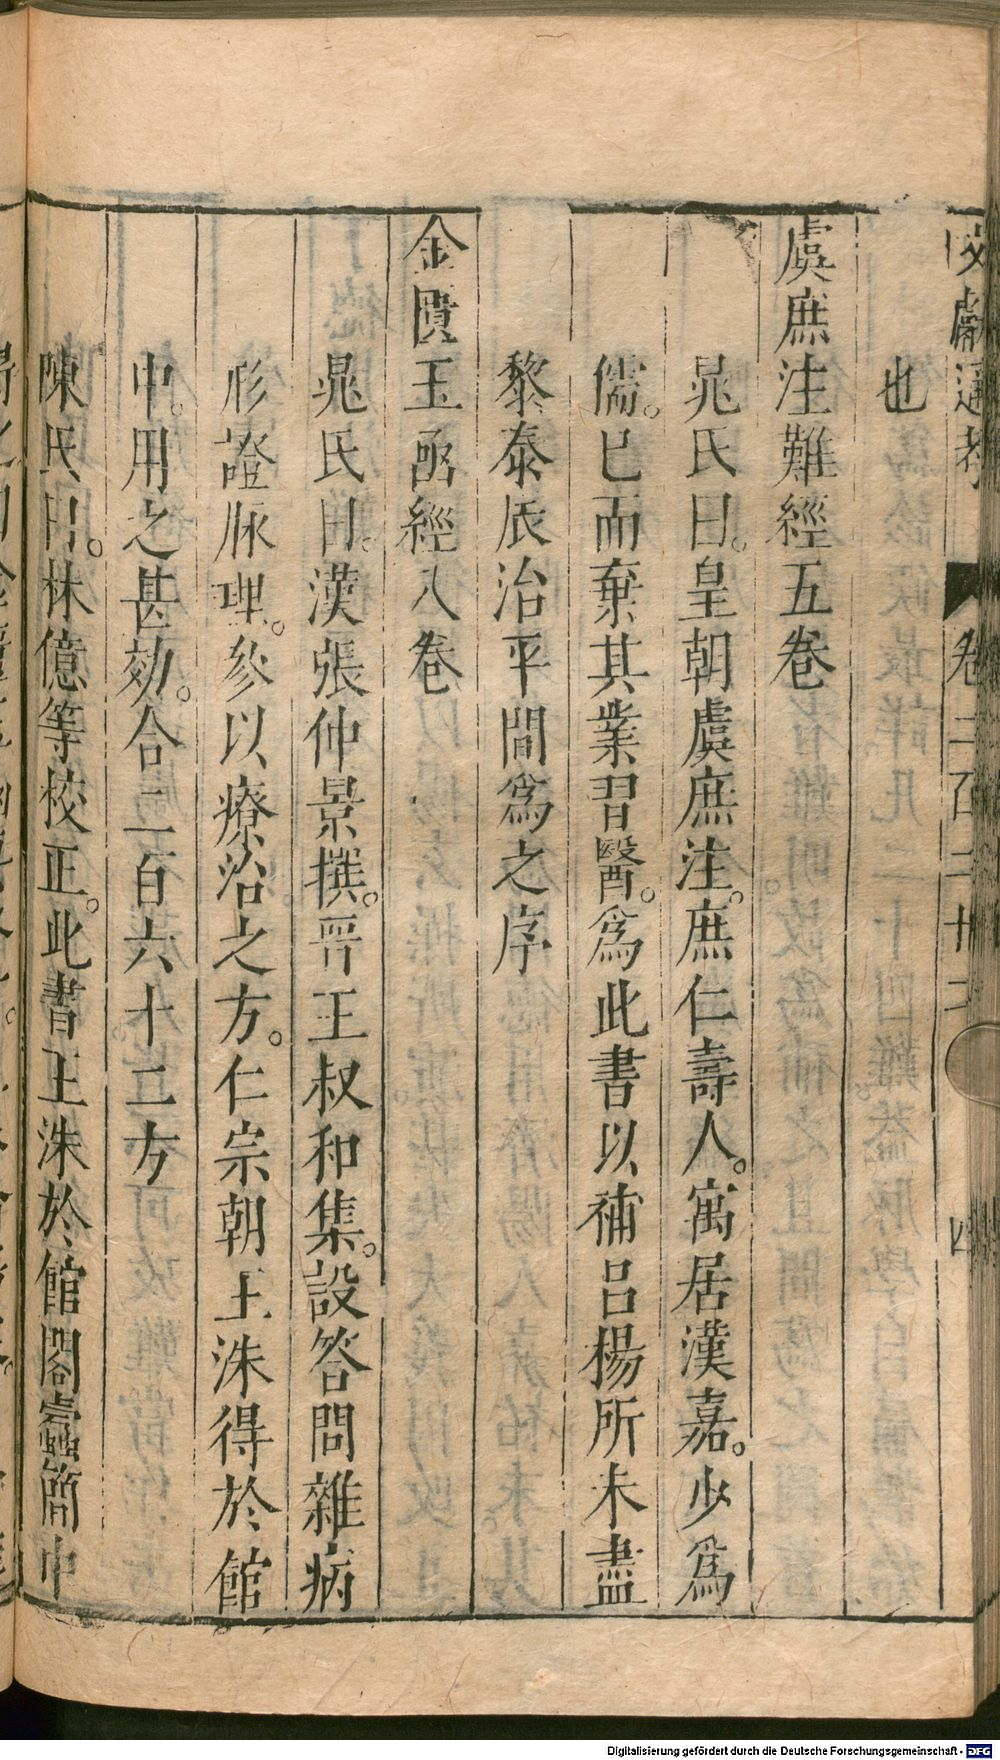 文獻通考 卷二百二十二 四
也
虞庶注難經五卷
晁氏曰。皇朝虞庶注。庶仁壽人。寓居漢嘉。少爲
儒。已而棄其業習醫。爲此書以補呂楊所未盡
黎泰辰治平間爲之序
金匱玉函經八卷
晁氏曰。漢張仲景撰。晉王叔和集。設答問雜病
形證脉理。參以療治之方。仁宗朝王洙得於館
中。用之甚効。合二百六十二方
陳氏曰。林億等校正。此書王洙於館閣蠹簡中
Digitalisierung gefördert durch die Deutsche Forschungsgemeinschaft - DFG